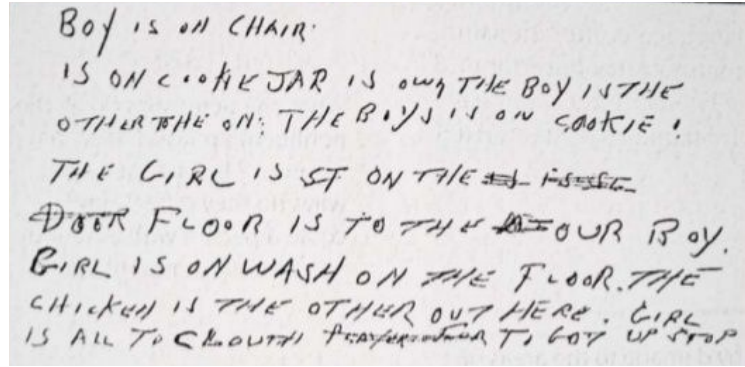 BOY IS ON CHAIR.
IS ON COOKIE JAR IS OWN THE BOY IS THE
OTHER THE ON: THE BOYS IS ON COOKIE.
THE GIRL IS ST ON THE
DOOR FLOOR IS TO THE OUR BOY.
GIRL IS ON WASH ON THE FLOOR. THE
CHICKEN IS THE OTHER OUT HERE. GIRL
IS ALL TO TO GOT UP STOP